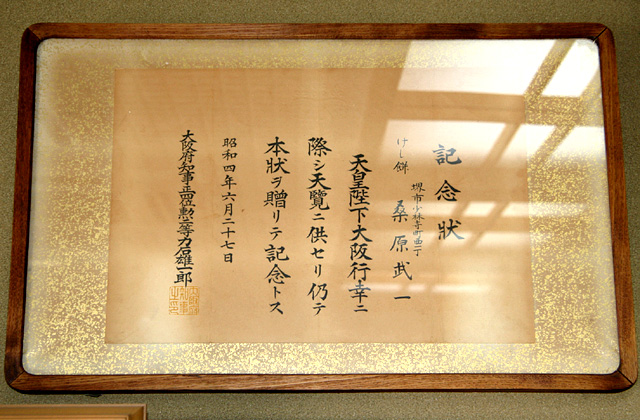 記念状
堺市少林寺町西一丁
けし餅 桑原武一
天皇陛下大阪行幸ニ
際シ天覽ニ供セリ仍テ
本状ヲ贈リテ記念トス
昭和四年六月二十七日
大阪府知事正四位勲二等力石雄一郎